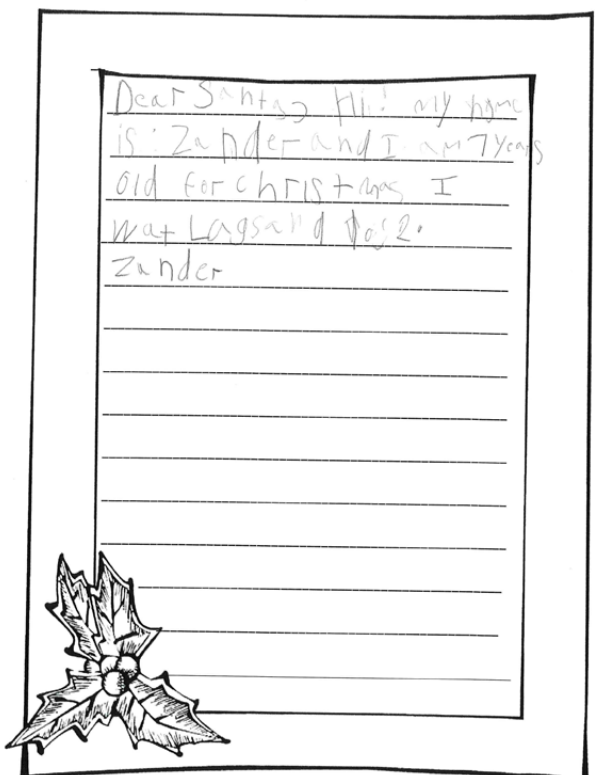 Dear Santa, Hi! my name
is: Zander and I am 7 years
old for christmas I
wat Lags and
Zander